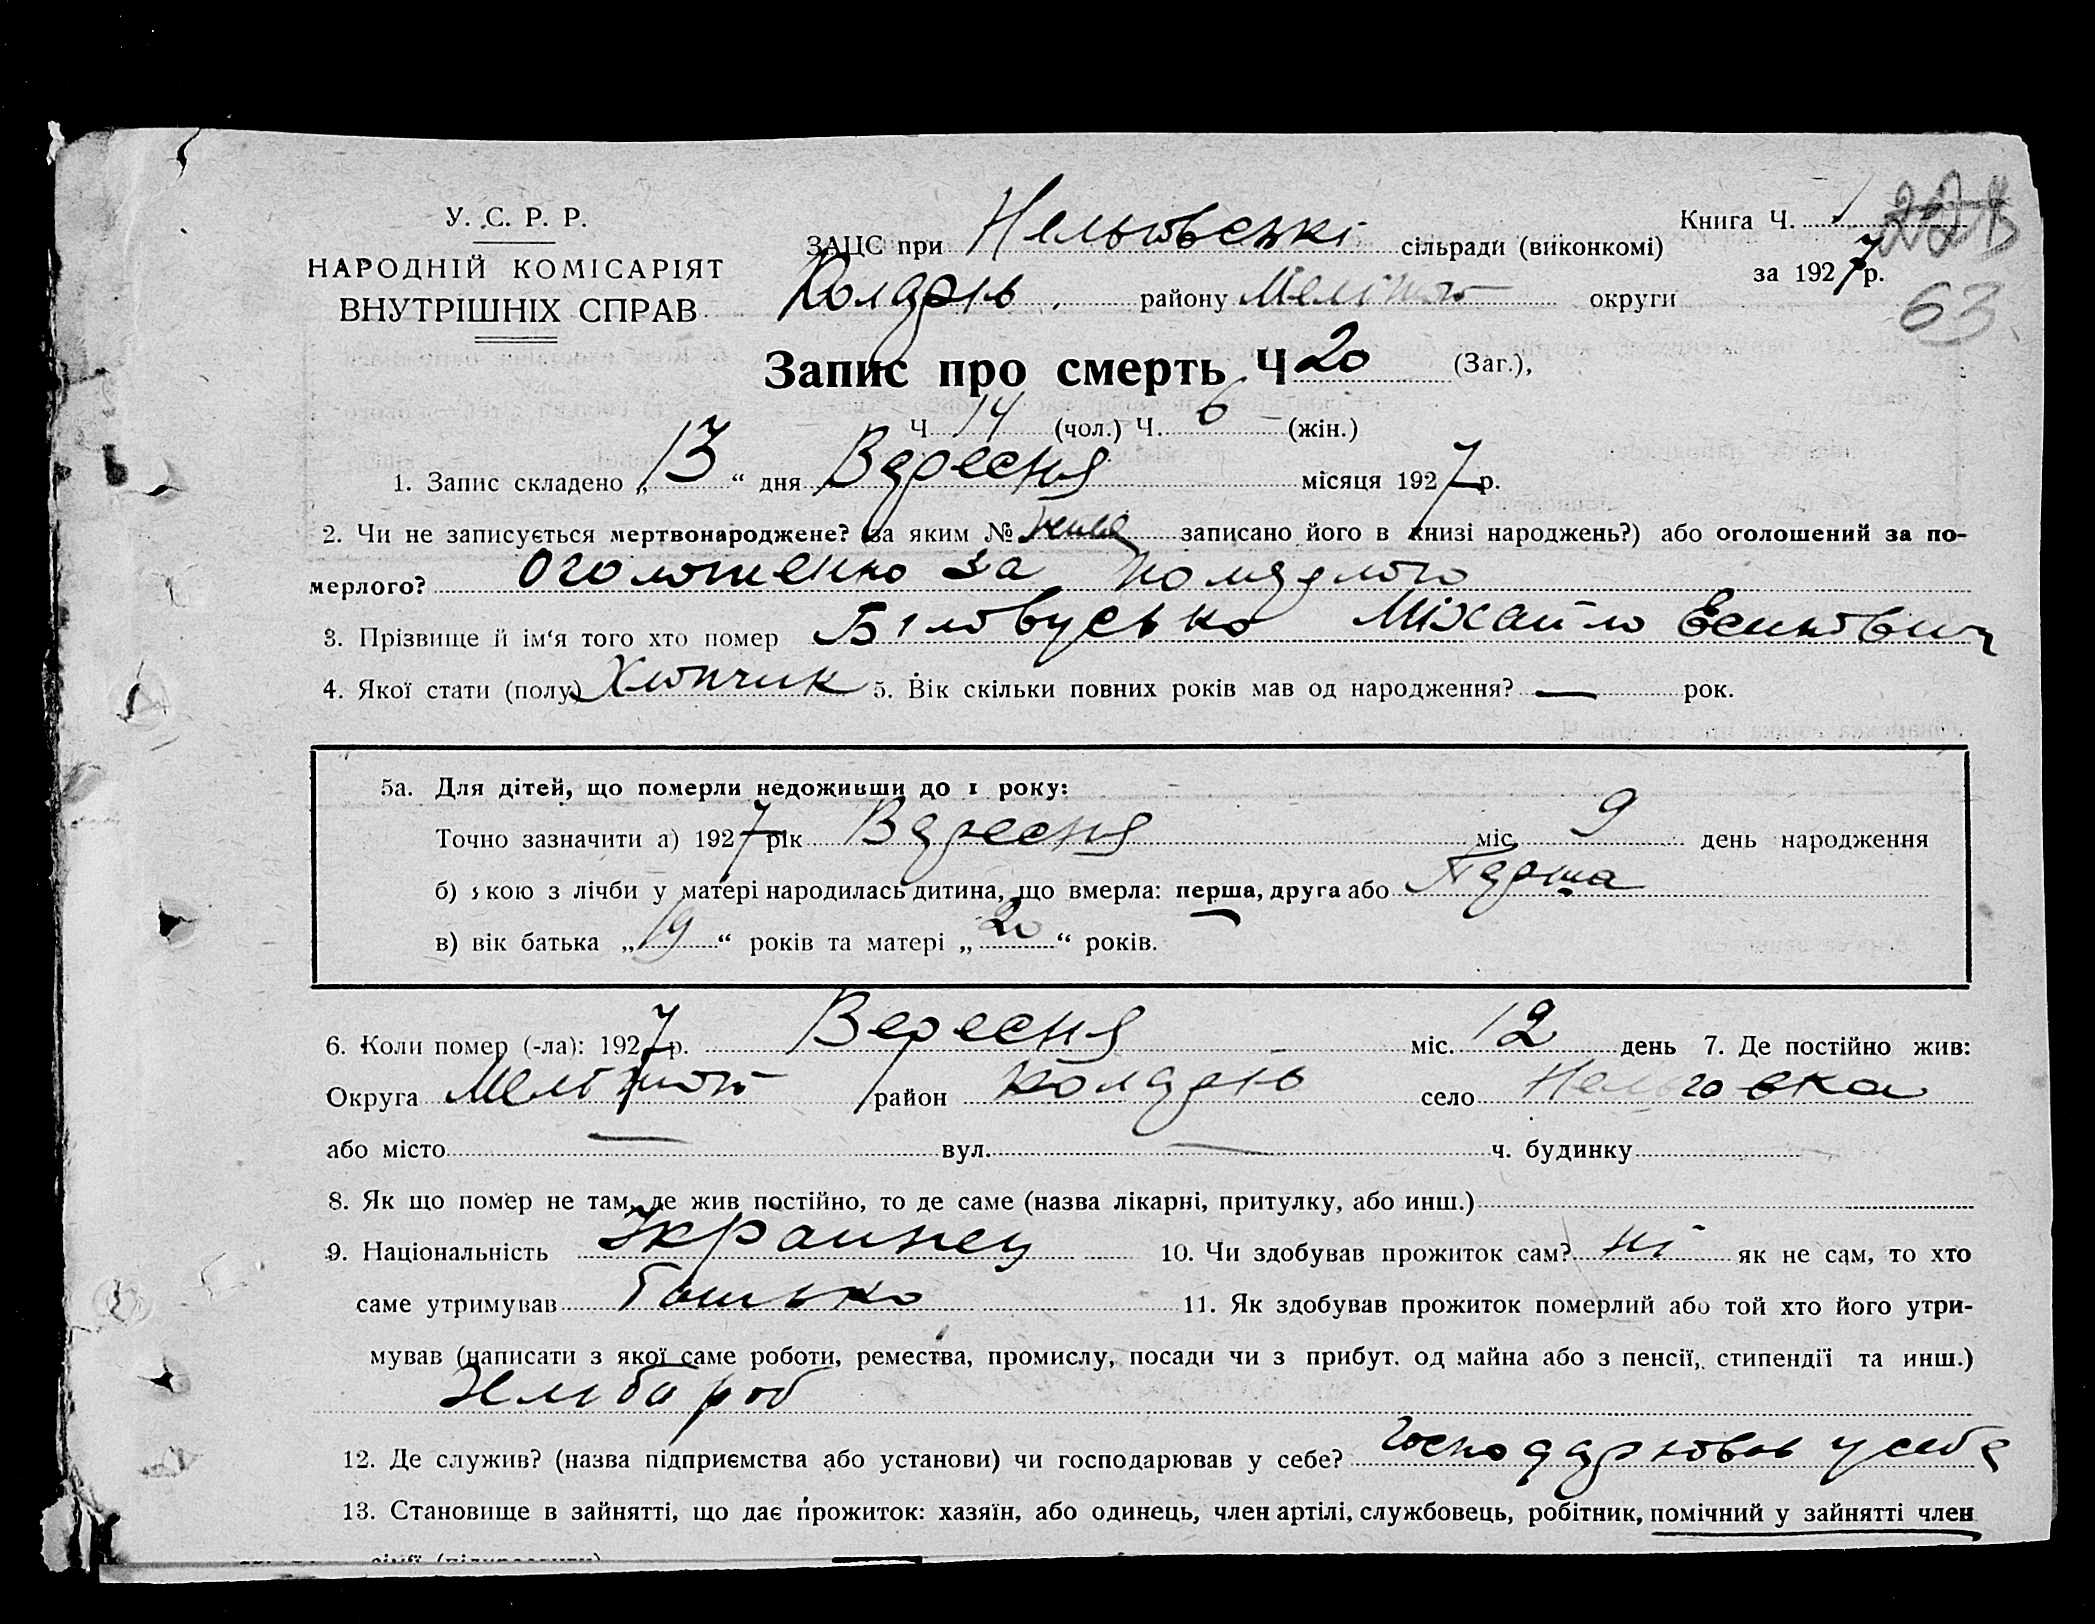 У. С. Р. Р.
НАРОДНІЙ КОМІСАРІЯТ
ВНУТРІШНІХ СПРАВ
Книга Ч. 1
за 1927 р.
63
ЗАЦС при Нельговські сільради (виконкомі)
району округи
Запис про смерть Ч 20 (Заг.),
Ч 14 (чол.) Ч. 6 (жін.)
1. Запис складено „13“ дня Вересня місяця 1927 р.
2. Чи не записується мертвонароджене? (за яким № записано його в книзі народжень?) або оголошений за по-
мерлого? Оголошено за
3. Прізвище й ім'я того хто помер Біловусько Міхайло
4. Якої стати (полу) Хлопчик 5. Вік скільки повних років мав од народження? — рок.
5а. Для дітей, що померли недоживши до 1 року:
Точно зазначити а) 1927 рік Вересня міс. 9 день народження
б) якою з лічби у матері народилась дитина, що вмерла: перша, друга або Перша
в) вік батька „19“ років та матері „20“ років.
6. Коли помер (-ла): 1927 р. Вересня міс. 12 день 7. Де постійно жив:
Округа район село Нельговка
або місто — вул. — ч. будинку
8. Як що помер не там, де жив постійно, то де саме (назва лікарні, притулку, або инш.)
9. Національність Украинец 10. Чи здобував прожиток сам? ні як не сам, то хто
саме утримував Батько 11. Як здобував прожиток померлий або той хто його утри-
мував (написати з якої саме роботи, ремества, промислу, посади чи з прибут. од майна або з пенсії, стипендії та инш.)
Хлібороб
12. Де служив? (назва підприємства або установи) чи господарював у себе? Господарював у себе
13. Становище в зайнятті, що дає прожиток: хазяїн, або одинець, член артілі, службовець, робітник, помічний у зайнятті член